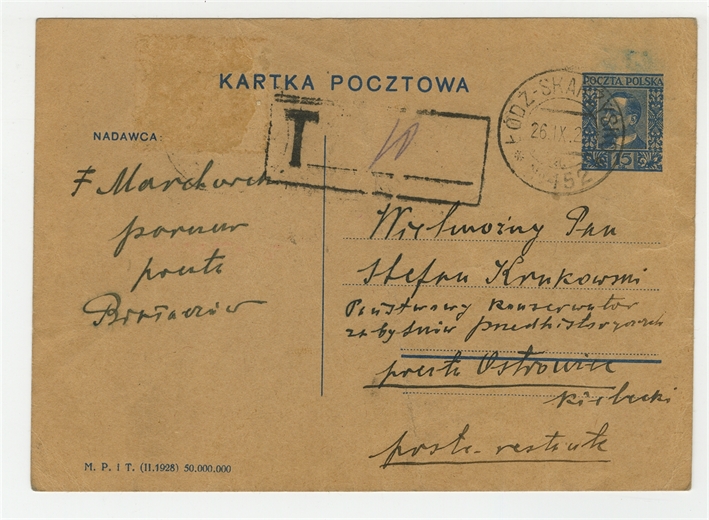 KARTKA POCZTOWA
POCZTA POLSKA
15
ŁÓDŹ-SKARŻYSKO
26.IX.2
152
T 10
NADAWCA:
F
poczta
Wielmożny Pan
Stefan Krukowski
Państwowy Konserwator
zabytków przedhistorycznych
poczta Ostrowiec
Kielecki
poste-restante
M. P. I T. (II.1928) 50.000.000